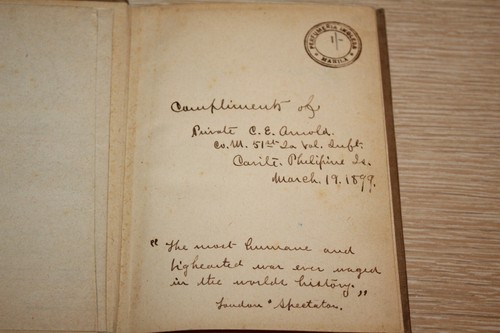 PERFUMERIA INGLESA
1/-
MANILA
Compliments of
Private C. E. Arnold.
Co. M. 51st Ia Vol. Inft.
Cavite. Philipine Is.
March. 19. 1899.
"The most humane and
bighearted war ever waged
in the worlds history."
London "Spectator.